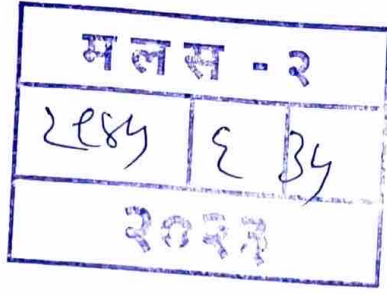 मलस - २
२९४५ ६ ३५
२०२२